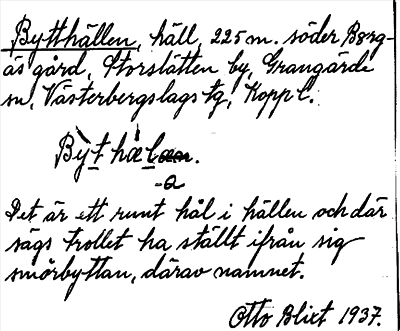 Bytthällen, häll, 225 m. söder Berg-
äs gård, Storslätten by, Grangärde
sn, Västerbergslags tg, Kopp l.
Bỳt hä́læn.
-a
Det är ett runt hål i hällen och där
sägs trollet ha ställt ifrån sig
smörbyttan, därav namnet.
Otto Blixt 1937.